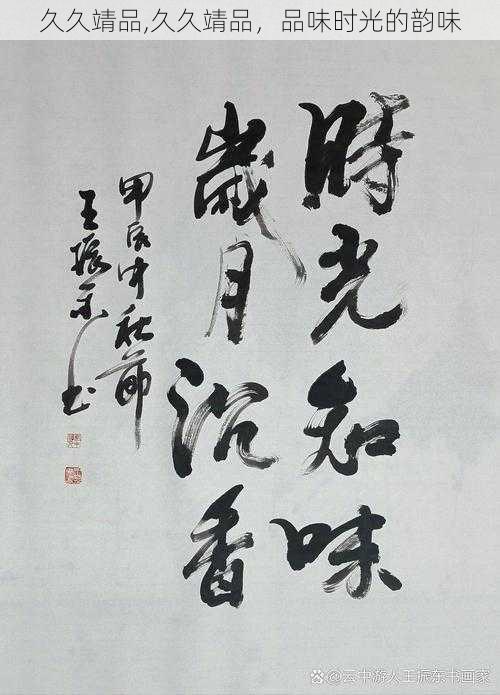 久久靖品,久久靖品，品味时光的韵味
時光知味
歲月沉香
甲辰中秋節
王振东书
云中游人王振东书画家